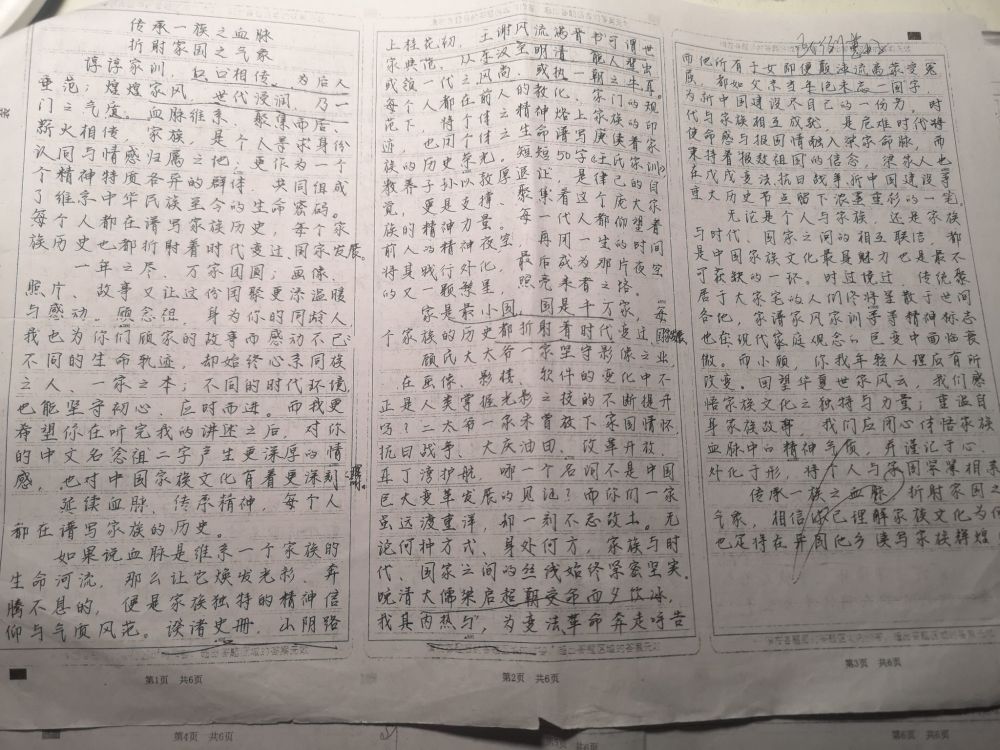 传承一族之血脉
折射家国之气象
谆谆家训，口口相传，为后人
垂范；煌煌家风，世代浸润，乃一
门之气质。血脉维系，聚集而居，
薪火相传，家族，是个人寻求身份
认同与情感归属之地；更作为一个
个精神特质各异的群体，共同组成
了维系中华民族至今的生命密码。
每个人都在谱写家族历史，每个家
族历史也都折射着时代变迁、国家发展。
一年之尽，万家团圆；画像、
照片、故事又让这份团聚更添温暖
与感动。顾念祖，身为你的同龄人，
我也为你们顾家的故事而感动不已：
不同的生命轨迹，却始终心系同族
之人，一家之本；不同的时代环境
也能坚守初心，应时而进。而我更
希望你在听完我的讲述之后，对你
的中文名念祖二字产生更深厚的情
感，也对中国家族文化有着更深刻理解。
延续血脉，传承精神，每个人
都在谱写家族的历史。
如果说血脉是维系一个家族的
生命河流，那么让它焕发光彩、奔
腾不息的，便是家族独特的精神信
仰与气质风范。谈诸史册，山阴路
上桂花初，王谢风流满晋书可谓世
家典范，从东汉至明清，能人辈出
或领一代之风尚，或执一朝之牛耳。
每个人都在前人的教化、家门的规
范下，将个体之精神烙上家族的印
，也用个体之生命谱写赓续着家
族的历史荣光。短短50字《王氏家训》
教养子孙以敦厚退让，是律己的自
觉，更是支撑、聚集着这个庞大家
族的精神力量。每一代人都仰望着
前人的精神夜空，再用一生的时间
将其践行外化，最后成为那片夜空
的又一颗繁星，照亮来者之路。
家是最小国，国是千万家，每
个家族的历史都折射着时代变迁、国家发展
顾氏大大爷一家坚守影像之业
，在画像、影楼、软件的变化中不
正是人类掌握光影之技的不断提升
吗？二大爷一家未曾放下家国情怀，
抗日战争、大庆油田、改革开放、
亚丁湾护航，哪一个名词不是中国
巨大变革发展的见证？而你们一家
虽远渡重洋，却一刻不忘故土。无
论何种方式、身处何方，家族与时
代、国家之间的丝线始终紧密坚实。
晚清大儒梁启超朝受命而夕饮冰，
我其内热与，为变法革命奔走呼告
而他所有子女即便颠沛流离荣变宽
质，都如父亲当年从未忘一国字，
为新中国建设尽自己的一份力。时
代与家族相互成就，是危难时代将
使命感与报国情融入梁家命脉，而
秉持着报效祖国的信念，梁家人也
在戊戌变法抗日战争新中国建设等
重大历史节点留下浓墨重彩的一笔。
无论是个人与家族，还是家族
与时代、国家之间的相互联结，都
是中国家族文化最具魅力也是最不
可获缺的一环。时过境迁，传统聚
居于大家宅的人们终将星散于世间
各地，家谱家风家训等等精神标志
也在现代家庭观念的巨变中面临衰
微。而小顾，你我年轻人理应有所
改变。回望华夏世家风云，我们感
悟家族文化之独特与力量；重温自
身家族故事，我们应用心体悟家族
血脉中的精神气质，并谨记于心、
外化于形，将个人与家国紧紧相系
传承一族之血脉，折射家国之
气象，相信你已理解家族文化为何
也定将在异国他乡续写家族辉煌
第1页 共6页
第2页 共6页
第3页 共6页
第4页 共6页
第6页 共6页